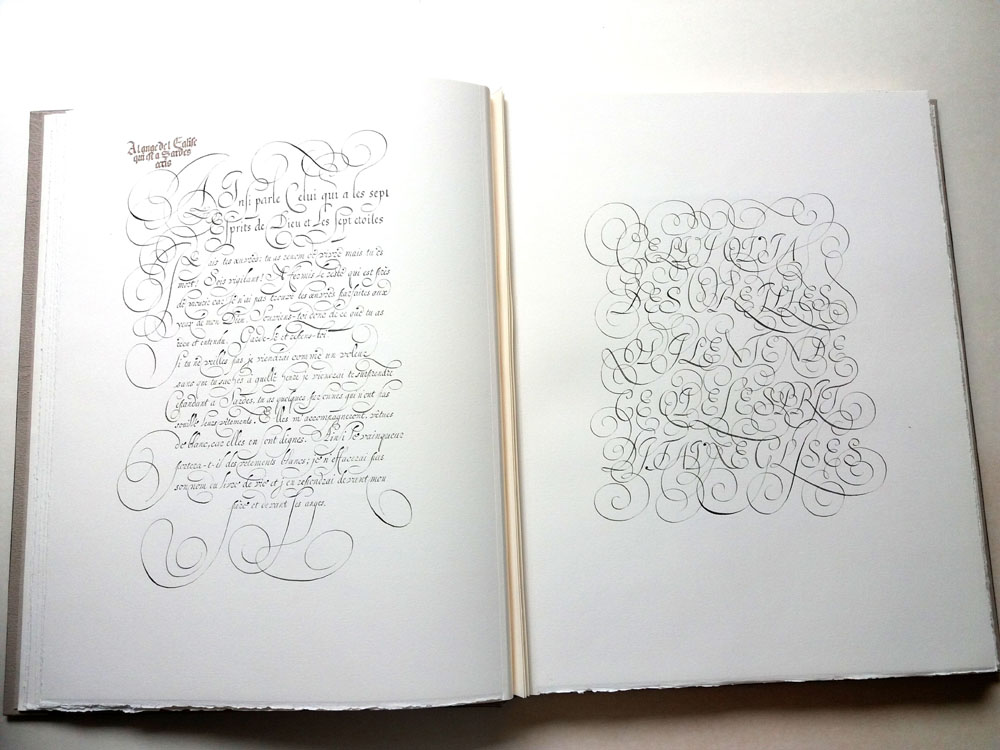 A l'ange de l'Eglise
qui est a Sardes
ecris
Ainsi parle Celui qui a les sept
Esprits de Dieu et Les sept etoiles
Je sais tes œuvres: tu as renom de vivre mais tu es
mort! Sois vigilant! Affermis le reste qui est près
de mourir car Je n'ai pas trouvé tes œuvres parfaites aux
yeux de mon Dieu. Souviens-toi donc de ce que tu as
reçu et entendu. Garde-le et repens-toi!
Si tu ne veilles pas je viendrai comme un voleur
sans que tu saches à quelle heure je viendrai te surprendre
Cependant à Sardes, tu as quelques personnes qui n'ont pas
souillé leurs vêtements. Elles m'accompagneront, vêtues
de blanc, car elles en sont dignes. Ainsi le vainqueur
portera-t-il des vêtements blancs; je n'effacerai pas
son nom du livre de vie et j'en répondrai devant mon
Père et devant ses anges.
CELUI QUI A
DES OREILLES
QU'IL ENTENDE
CE QUE L'ESPRIT
DIT AUX EGLISES